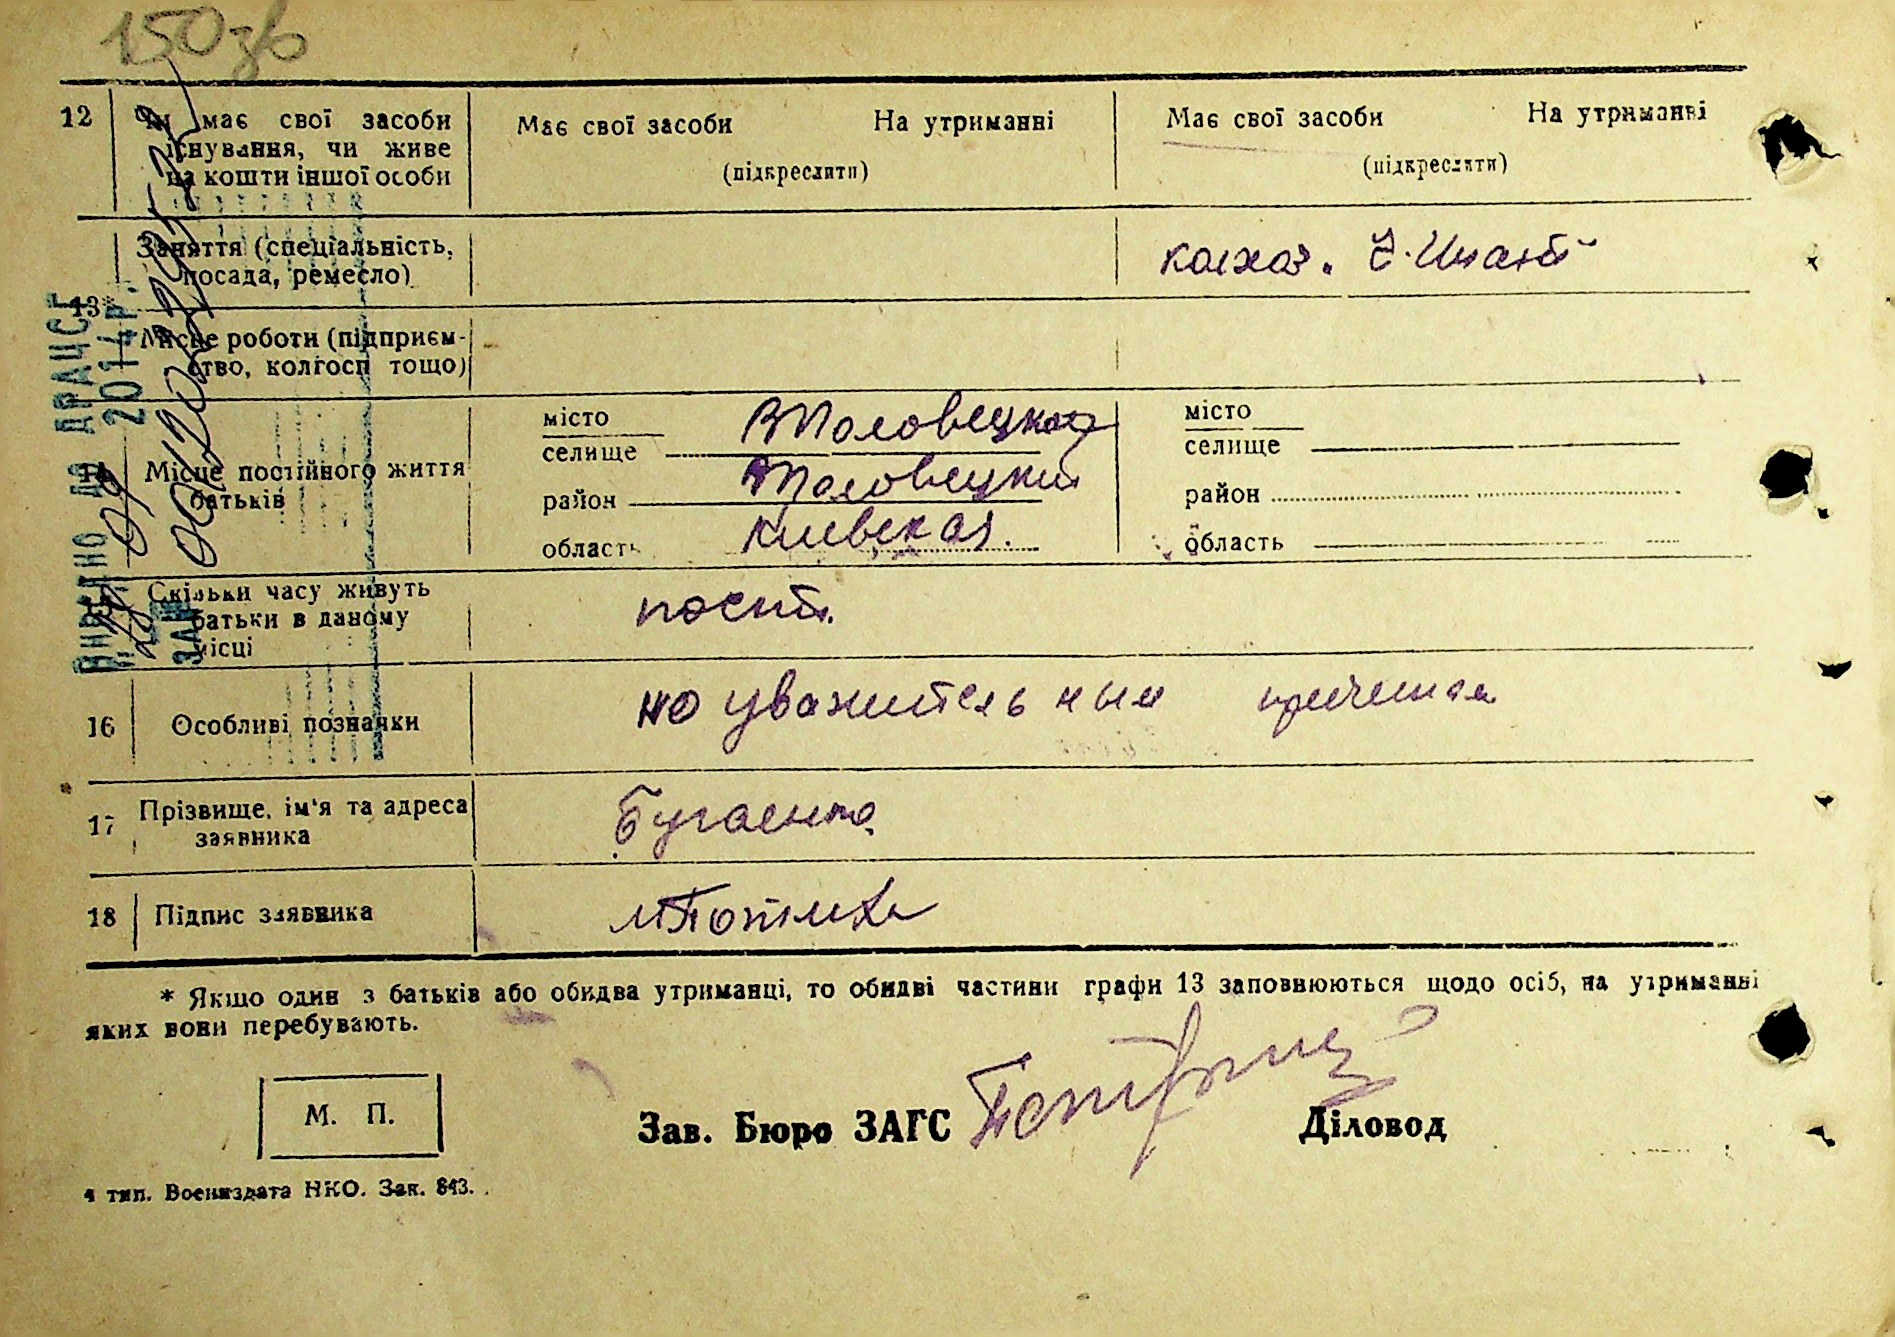 150зв
12 Чи має свої засоби
існування, чи живе
на кошти іншої особи
Має свої засоби На утриманні
(підкреслити)
Має свої засоби На утриманні
(підкреслити)
13
Заняття (спеціальність,
посада, ремесло)
колхоз.
Місце роботи (підприєм-
ство, колгосп тощо)
14 Місце постійного життя
батьків
місто
селище
район
область Киевская.
місто
селище
район
область
15 Скільки часу живуть
батьки в даному
місці
16 Особливі позначки
по уважительным причинам
17 Прізвище, ім'я та адреса
заявника
Бугаенко
18 Підпис заявника
* Якщо один з батьків або обидва утриманці, то обидві частини графи 13 заповнюються щодо осіб, на утриманні
яких вони перебувають.
М. П.
Зав. Бюро ЗАГС Діловод
4 тип. Воениздата НКО. Зак. 843.
ВНЕСЕНО ДО ДРАЦСГ
29 09 2014р.
ЗА №